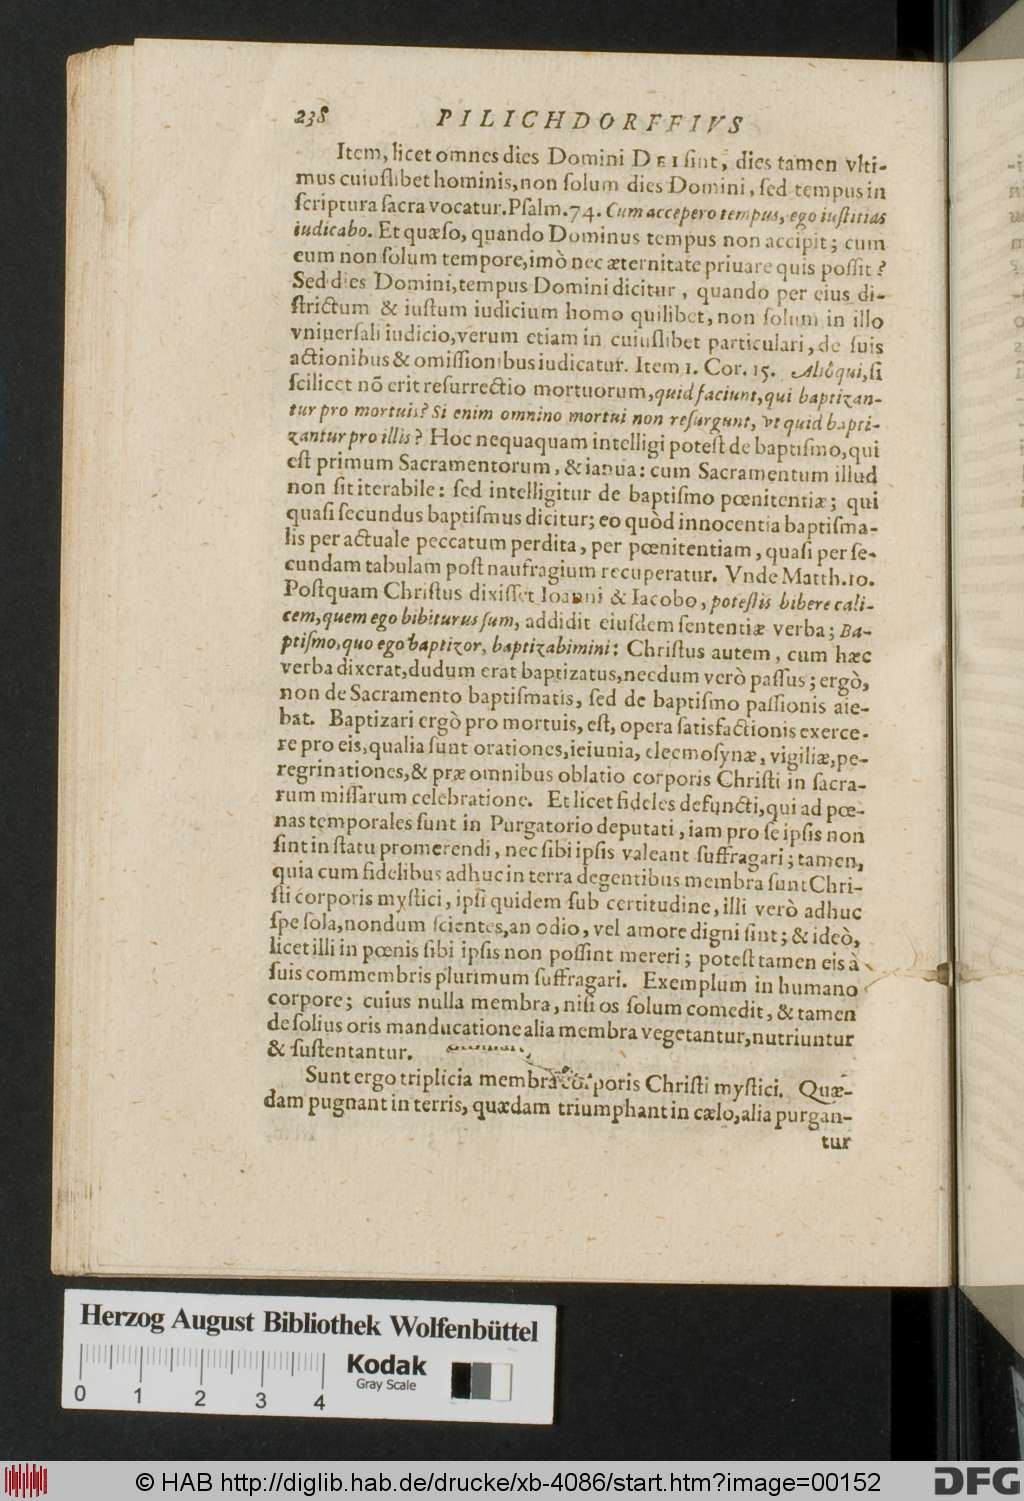 238 PILICHDORFFIVS
Item, licet omnes dies Domini DEI sint, dies tamen vlti-
mus cuiuslibet hominis, non solum dies Domini, sed tempus in
scriptura sacra vocatur. Psalm. 74. Cum accepero tempus, ego iustitias
iudicabo. Et quæso, quando Dominus tempus non accipit; cum
eum non solum tempore, imò nec æternitate priuare quis possit?
Sed dies Domini, tempus Domini dicitur, quando per eius di-
strictum & iustum iudicium homo quilibet, non solum in illo
vniuersali iudicio, verum etiam in cuiuslibet particulari, de suis
actionibus & omissionibus iudicatur. Item 1. Cor. 15. Alioqui, si
scilicet nõ erit resurrectio mortuorum, quid faciunt, qui baptizan-
tur pro mortuis? Si enim omnino mortui non resurgunt, vt quid bapti-
zantur pro illis? Hoc nequaquam intelligi potest de baptismo, qui
est primum Sacramentorum, & ianua: cum Sacramentum illud
non sit iterabile: sed intelligitur de baptismo pœnitentiæ; qui
quasi secundus baptismus dicitur; eo quòd innocentia baptisma-
lis per actuale peccatum perdita, per pœnitentiam, quasi per se-
cundam tabulam post naufragium recuperatur. Vnde Matth. 10.
Postquam Christus dixisset Ioanni & Iacobo, potestis bibere cali-
cem, quem ego bibiturus sum, addidit eiusdem sententiæ verba; Ba-
ptismo, quo ego baptizor, baptizabimini: Christus autem, cum hæc
verba dixerat, dudum erat baptizatus, necdum verò passus; ergò,
non de Sacramento baptismatis, sed de baptismo passionis aie-
bat. Baptizari ergò pro mortuis, est, opera satisfactionis exerce-
re pro eis, qualia sunt orationes, ieiunia, eleemosynæ, vigiliæ, pe-
regrinationes, & præ omnibus oblatio corporis Christi in sacra-
rum missarum celebratione. Et licet fideles defuncti, qui ad pœ-
nas temporales sunt in Purgatorio deputati, iam pro se ipsis non
sint in statu promerendi, nec sibi ipsis valeant suffragari; tamen,
quia cum fidelibus adhuc in terra degentibus membra sunt Chri-
sti corporis mystici, ipsi quidem sub certitudine, illi verò adhuc
spe sola, nondum scientes, an odio, vel amore digni sint; & ideò,
licet illi in pœnis sibi ipsis non possint mereri; potest tamen eis à
suis commembris plurimum suffragari. Exemplum in humano
corpore; cuius nulla membra, nisi os solum comedit, & tamen
de solius oris manducatione alia membra vegetantur, nutriuntur
& sustentantur.
Sunt ergo triplicia membra corporis Christi mystici. Quæ-
dam pugnant in terris, quædam triumphant in cælo, alia purgan-
tur
Herzog August Bibliothek Wolfenbüttel
Kodak
Gray Scale
0 1 2 3 4
© HAB http://diglib.hab.de/drucke/xb-4086/start.htm?image=00152
DFG